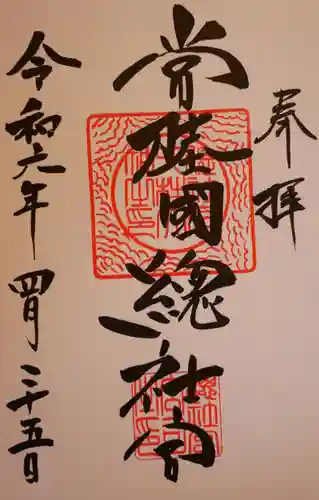 奉拝
常陸國總社宮
令和六年四月二十五日